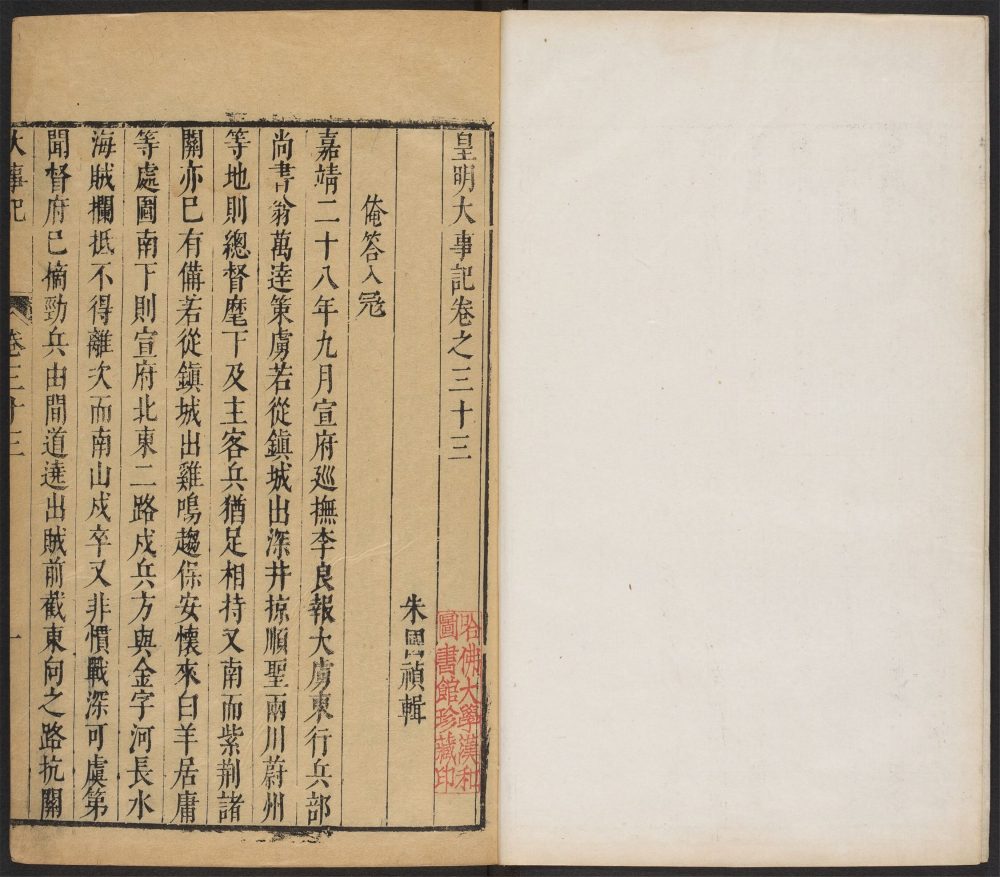 皇明大事記卷之三十三
朱國禎輯
俺答入冦
嘉靖二十八年九月宣府廵撫李良報大虜東行兵部
尚書翁萬逹策虜若從鎮城出深井掠順聖兩川蔚州
等地則總督麾下及主客兵猶足相持又南而紫荆諸
關亦已有備若從鎮城出雞鳴趨保安懷來白羊居庸
等處圖南下則宣府北東二路戍兵方與金字河長水
海賊欄抵不得離次而南山戍卒又非慣戰深可虞第
聞督府已摘勁兵由間道遶出賊前截東向之路抗關
大事記 卷三十三 一
哈佛大學漢和
圖書館珍藏印